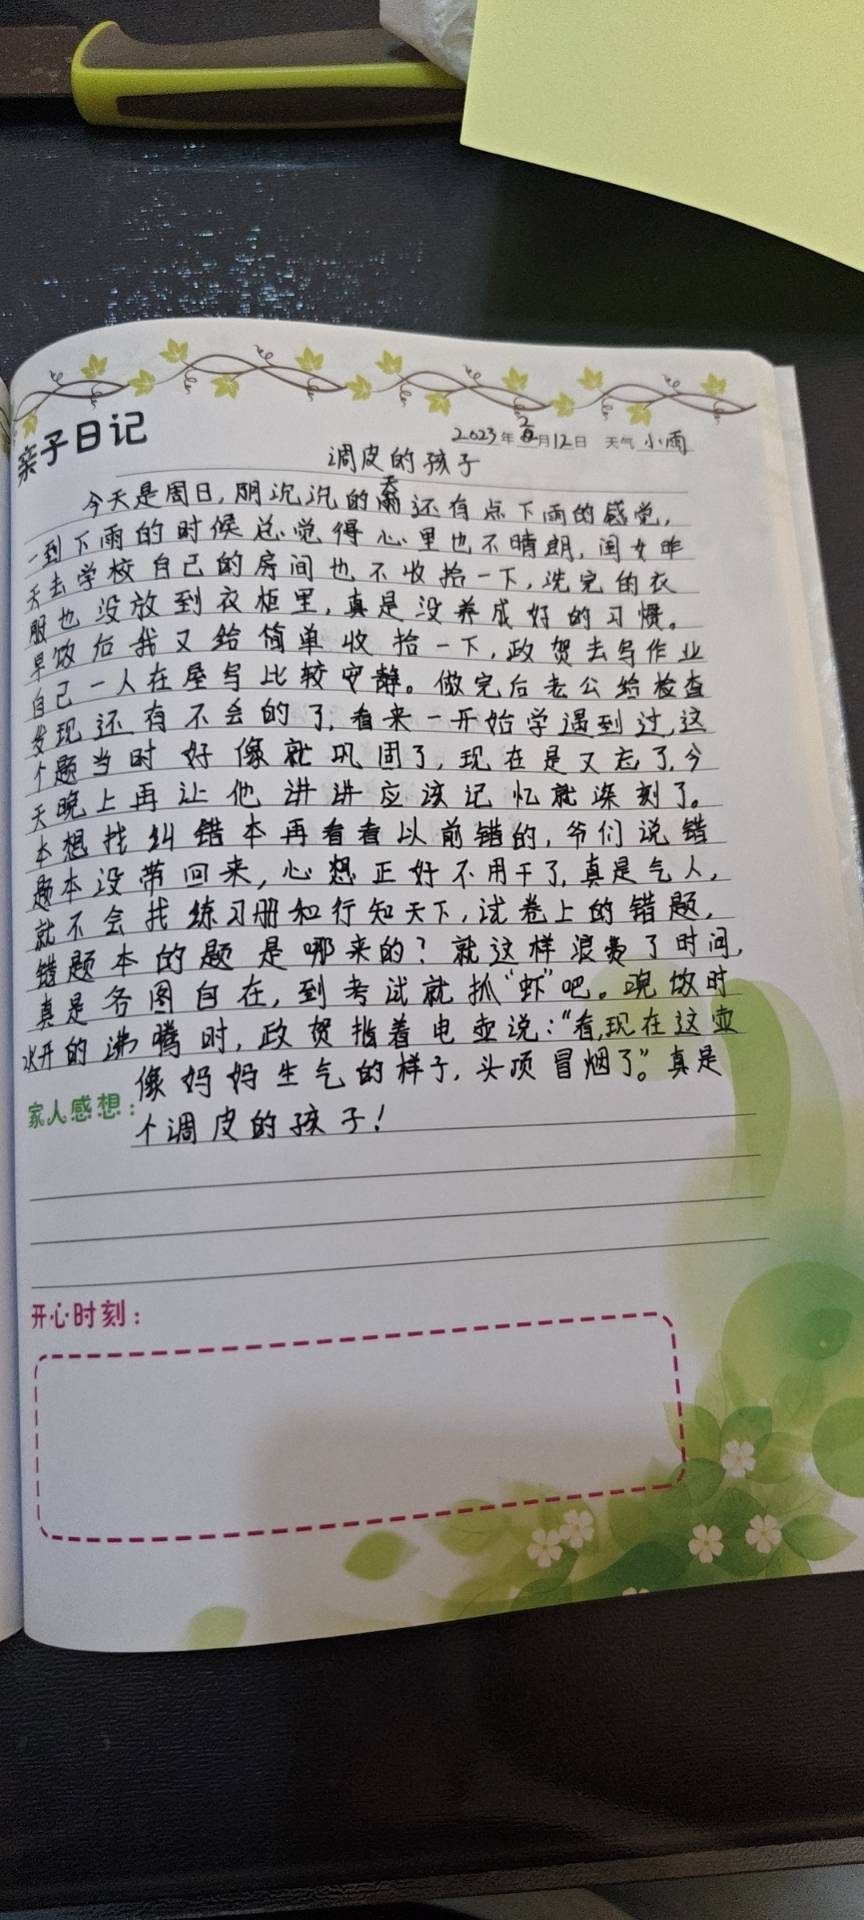 亲子日记
2023年2月12日 天气 小雨
调皮的孩子
今天是周日,阴沉沉的天还有点下雨的感觉,
一到下雨的时候总觉得心里也不晴朗,闺女昨
天去学校自己的房间也不收拾一下,洗完的衣
服也没放到衣柜里,真是没养成好的习惯。
早饭后我又给简单收拾一下,政贺去写作业
自己一人在屋写比较安静。做完后老公给检查
发现还有不会的了,看来一开始学遇到过,这
个题当时好像就巩固了,现在是又忘了,今
天晚上再让他讲讲应该记忆就深刻了。
本想找纠错本再看看以前错的,爷们说错
题本没带回来,心想正好不用干了,真是气人,
就不会找练习册和行知天下,试卷上的错题,
错题本的题是哪来的?就这样浪费了时间,
真是各图自在,到考试就抓“虾”吧。晚饭时
水开的沸腾时,政贺指着电壶说:“看,现在这壶
像妈妈生气的样子,头顶冒烟了。”真是
家人感想:
个调皮的孩子!
开心时刻: